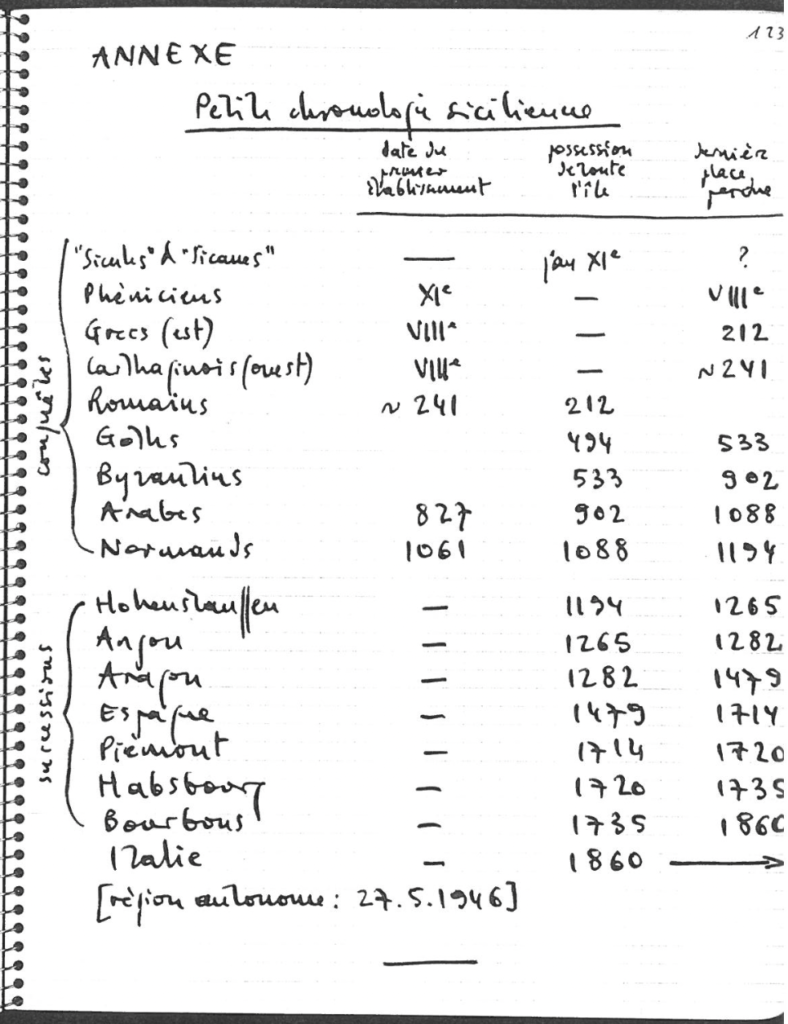 123
ANNEXE
Petite chronologie sicilienne
date du premier établissement
possession de toute l'île
dernière place perdue
"Sicules" & "Sicanes" — jqu'au XIe ?
Phéniciens XIe — VIIIe
Grecs (est) VIIIe — 212
Carthaginois (ouest) VIIIe — ~241
Romains ~241 212
Goths 494 533
Byzantins 533 902
Arabes 827 902 1088
Normands 1061 1088 1194
conquêtes
Hohenstauffen — 1194 1265
Anjou — 1265 1282
Aragon — 1282 1479
Espagne — 1479 1714
Piémont — 1714 1720
Habsbourg — 1720 1735
Bourbons — 1735 1860
successions
Italie — 1860 →
[région autonome : 27.5.1946]